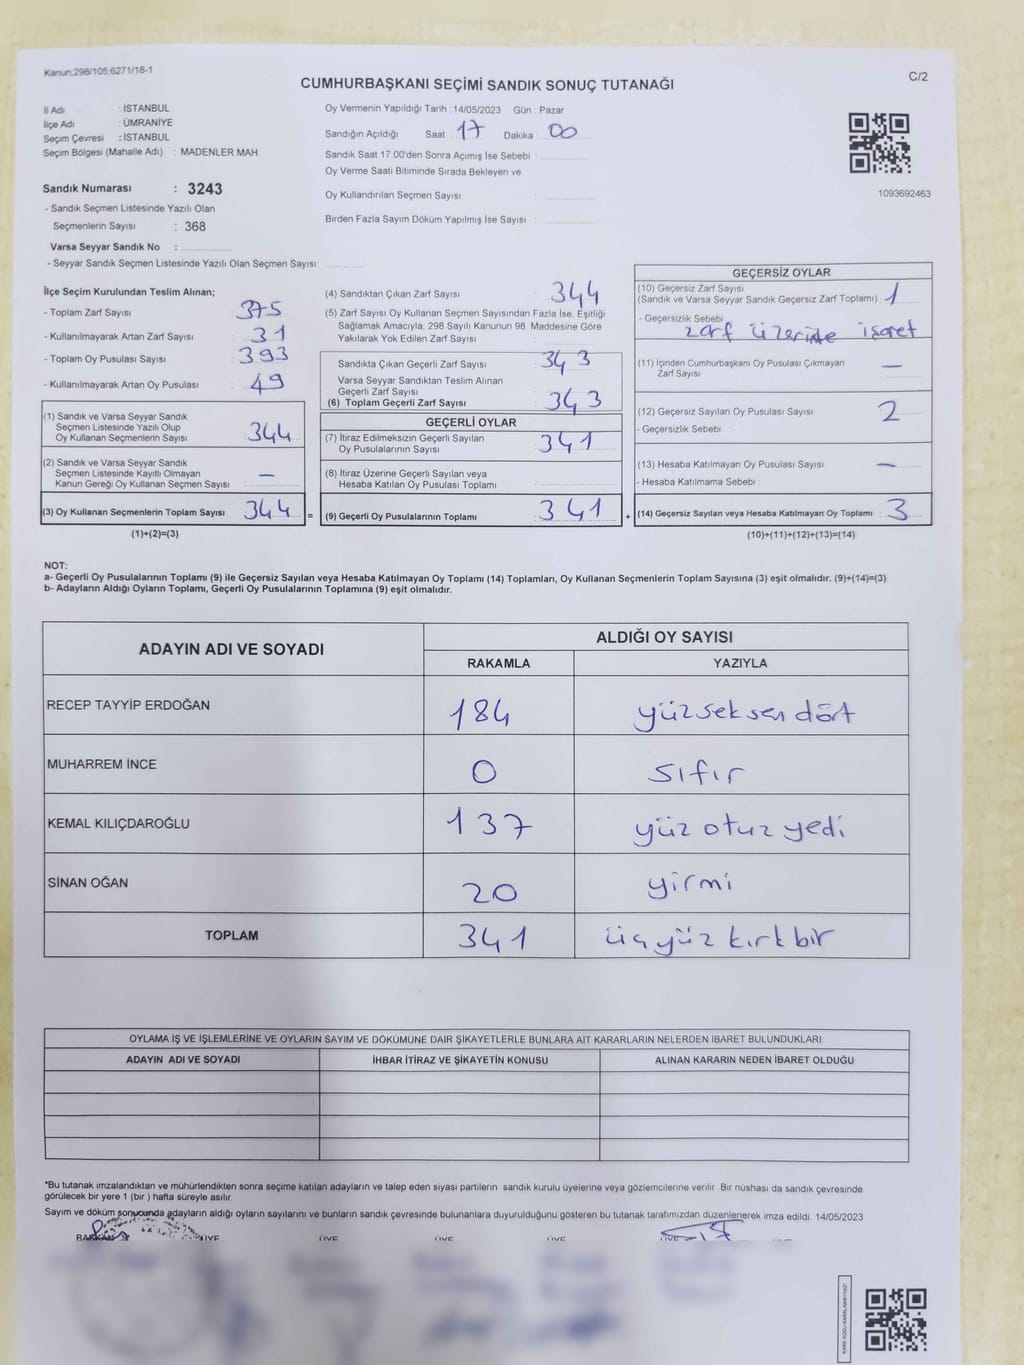 Kanun:298/105;6271/18-1
C/2
CUMHURBAŞKANI SEÇİMİ SANDIK SONUÇ TUTANAĞI
İl Adı : İSTANBUL
İlçe Adı : ÜMRANİYE
Seçim Çevresi : İSTANBUL
Seçim Bölgesi (Mahalle Adı) : MADENLER MAH.
Sandık Numarası : 3243
- Sandık Seçmen Listesinde Yazılı Olan
Seçmenlerin Sayısı : 368
Varsa Seyyar Sandık No :
- Seyyar Sandık Seçmen Listesinde Yazılı Olan Seçmen Sayısı:
Oy Vermenin Yapıldığı Tarih : 14/05/2023 Gün : Pazar
Sandığın Açıldığı Saat : 17 Dakika : 00
Sandık Saat 17:00'den Sonra Açımış İse Sebebi :
Oy Verme Saati Bitiminde Sırada Bekleyen ve
Oy Kullandırılan Seçmen Sayısı :
Birden Fazla Sayım Döküm Yapılmış İse Sayısı :
1093692463
İlçe Seçim Kurulundan Teslim Alınan;
- Toplam Zarf Sayısı : 375
- Kullanılmayarak Artan Zarf Sayısı : 31
- Toplam Oy Pusulası Sayısı : 393
- Kullanılmayarak Artan Oy Pusulası : 49
(1) Sandık ve Varsa Seyyar Sandık
Seçmen Listesinde Yazılı Olup
Oy Kullanan Seçmenlerin Sayısı : 344
(2) Sandık ve Varsa Seyyar Sandık
Seçmen Listesinde Kayıtlı Olmayan
Kanun Gereği Oy Kullanan Seçmen Sayısı : —
(3) Oy Kullanan Seçmenlerin Toplam Sayısı : 344 =
(1)+(2)=(3)
(4) Sandıktan Çıkan Zarf Sayısı : 344
(5) Zarf Sayısı Oy Kullanan Seçmen Sayısından Fazla İse, Eşitliği
Sağlamak Amacıyla, 298 Sayılı Kanunun 98. Maddesine Göre
Yakılarak Yok Edilen Zarf Sayısı :
Sandıkta Çıkan Geçerli Zarf Sayısı : 343
Varsa Seyyar Sandıktan Teslim Alınan
Geçerli Zarf Sayısı :
(6) Toplam Geçerli Zarf Sayısı : 343
GEÇERLİ OYLAR
(7) İtiraz Edilmeksizin Geçerli Sayılan
Oy Pusulalarının Sayısı : 341
(8) İtiraz Üzerine Geçerli Sayılan veya
Hesaba Katılan Oy Pusulası Toplamı :
(9) Geçerli Oy Pusulalarının Toplamı : 341 +
GEÇERSİZ OYLAR
(10) Geçersiz Zarf Sayısı
(Sandık ve Varsa Seyyar Sandık Geçersiz Zarf Toplamı) : 1
- Geçersizlik Sebebi
zarf üzeride işaret
(11) İçinden Cumhurbaşkanı Oy Pusulası Çıkmayan
Zarf Sayısı : —
(12) Geçersiz Sayılan Oy Pusulası Sayısı : 2
- Geçersizlik Sebebi :
(13) Hesaba Katılmayan Oy Pusulası Sayısı : —
- Hesaba Katılmama Sebebi :
(14) Geçersiz Sayılan veya Hesaba Katılmayan Oy Toplamı : 3
(10)+(11)+(12)+(13)=(14)
NOT:
a- Geçerli Oy Pusulalarının Toplamı (9) ile Geçersiz Sayılan veya Hesaba Katılmayan Oy Toplamı (14) Toplamları, Oy Kullanan Seçmenlerin Toplam Sayısına (3) eşit olmalıdır. (9)+(14)=(3)
b- Adayların Aldığı Oyların Toplamı, Geçerli Oy Pusulalarının Toplamına (9) eşit olmalıdır.
ADAYIN ADI VE SOYADI
ALDIĞI OY SAYISI
RAKAMLA YAZIYLA
RECEP TAYYİP ERDOĞAN 184 yüzseksen dört
MUHARREM İNCE 0 sıfır
KEMAL KILIÇDAROĞLU 137 yüz otuz yedi
SİNAN OĞAN 20 yirmi
TOPLAM 341 üçyüz kırk bir
OYLAMA İŞ VE İŞLEMLERİNE VE OYLARIN SAYIM VE DÖKÜMÜNE DAİR ŞİKAYETLERLE BUNLARA AİT KARARLARIN NELERDEN İBARET BULUNDUKLARI
ADAYIN ADI VE SOYADI İHBAR İTİRAZ VE ŞİKAYETİN KONUSU ALINAN KARARIN NEDEN İBARET OLDUĞU
*Bu tutanak imzalandıktan ve mühürlendikten sonra seçime katılan adayların ve talep eden siyası partilerin sandık kurulu üyelerine veya gözlemcilerine verilir. Bir nüshası da sandık çevresinde
görülecek bir yere 1 (bir ) hafta süreyle asılır.
Sayım ve döküm sonucunda adayların aldığı oyların sayılarını ve bunların sandık çevresinde bulunanlara duyurulduğunu gösteren bu tutanak tarafımızdan düzenlenerek imza edildi. 14/05/2023
BAŞKAN ÜYE ÜYE ÜYE ÜYE ÜYE ÜYE